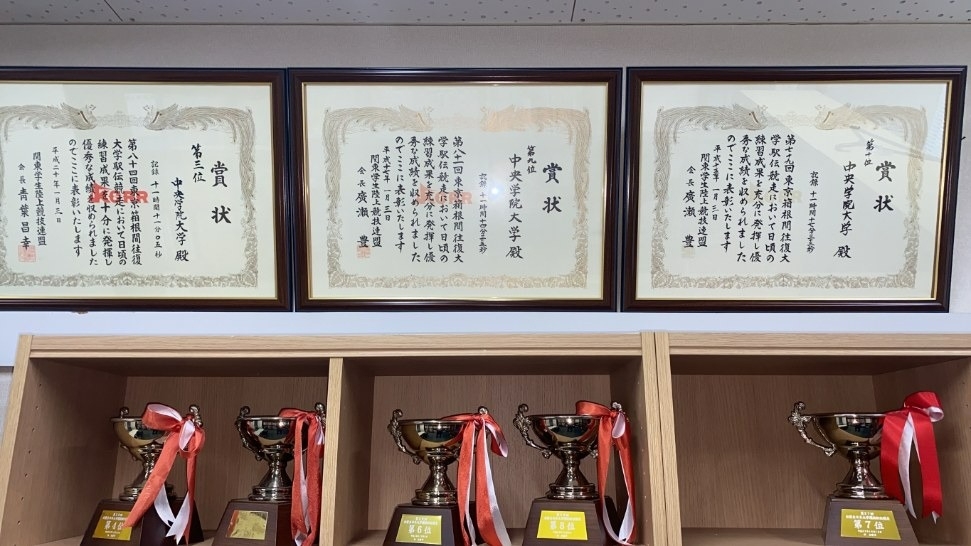 賞状
第三位
中央学院大学 殿
記録 十一時間十一分〇五秒
第八十四回東京箱根間往復
大学駅伝競走において日頃の
練習成果を十分に発揮し
優秀な成績を収められました
のでここに表彰いたします
平成二十年一月三日
関東学生陸上競技連盟
会長 青葉昌幸
賞状
第九位
中央学院大学 殿
記録 十一時間十四分
第八十一回東京箱根間往復大
学駅伝競走において日頃の
練習成果を充分に発揮し優
秀な成績を収められました
のでここに表彰いたします
平成十七年一月三日
関東学生陸上競技連盟
会長 廣瀬 豊
賞状
中央学院大学 殿
記録 十一時間
第七十九回東京箱根間往復大
学駅伝競走において日頃の
練習成果を充分に発揮し優
秀な成績を収められました
のでここに表彰いたします
平成十五年一月三日
関東学生陸上競技連盟
会長 廣瀬 豊
第4位
第6位
第5位
第7位